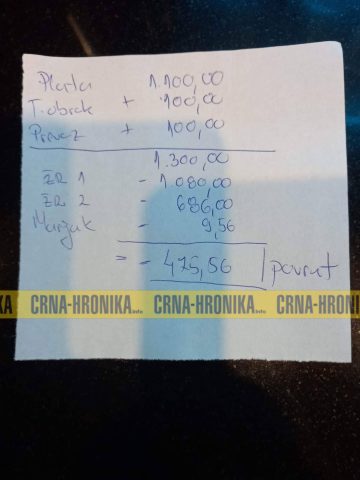 Plata 1.100,00
T.obrok + 100,00
Prevoz + 100,00
1.300,00
ŽR 1 - 1.080,00
ŽR 2 - 686,00
Manjak - 9,56
= - 475,56 / povrat
KA CRNA-HRONIKA.info CRNA-HRONIKA.info CRNA-HRONIKA